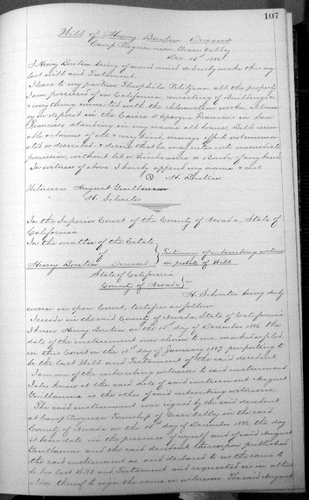 107
Will of Henry Boutin Deceased
Camp Bograso near Grass Valley
Dec. 15th 1886
I Henry Boutin being of sound mind do hereby make this my
last Will and Testament.
I leave to my partner Theophile all the property
I am possessed of in California Consisting of Buildings &
everything connected with the chlorination works, all money
on deposit in the Caisse d'Epargne Francaise in San
Francisco also in my name all loans, Debts and
I desire that he may enter into immediate
possession, without let or hindrance or Bonds of any kind
In witness of above I hereby append my name & seal
H. Boutin
Witnesses August Guillaume
" H. Silvester
In the Superior Court of the County of Nevada, State of
California
In the matter of the Estate
of
Henry Boutin Deceased
Testimony of subscribing witness
on probate of Will
State of California
County of Nevada
H. Silvester being duly
sworn in open Court, testifies as follows
I reside in the said County of Nevada State of California
I knew Henry Boutin on the 15th day of December 1886 the
date of the instrument now shown to me marked as filed
in this Court on the day of January 1887 purporting to
be the last Will and Testament of the said decedent
I am one of the subscribing witnesses to said instrument
I also knew at the said date of said instrument August
Guillaume as the other of said subscribing witnesses
The said instrument was signed by the said decedent
at Camp Township of Grass Valley in the said
County of Nevada on the 15th day of December 1886 the day
it bears date in the presence of myself and of said August
Guillaume and the said decedent thereupon published
the said instrument as and declared to us the same to
be his last Will and Testament and requested us in attest-
ation thereof to sign the same as witnesses The said August